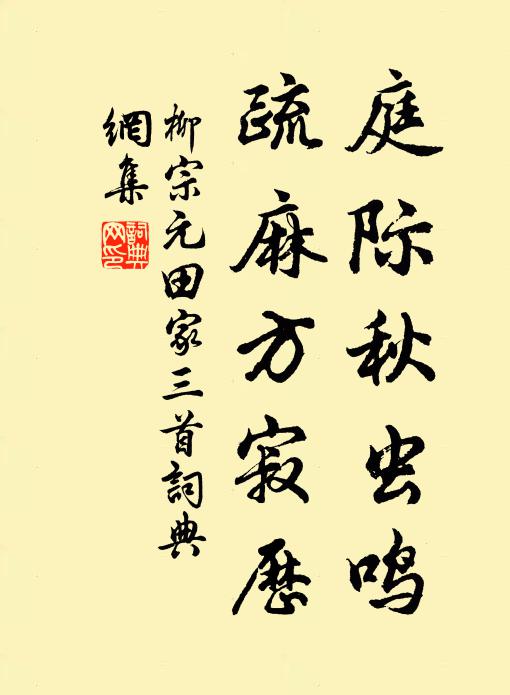 庭际秋虫鸣
疏麻方寂历
柳宗元田家三首詞典
網集
詞典网印